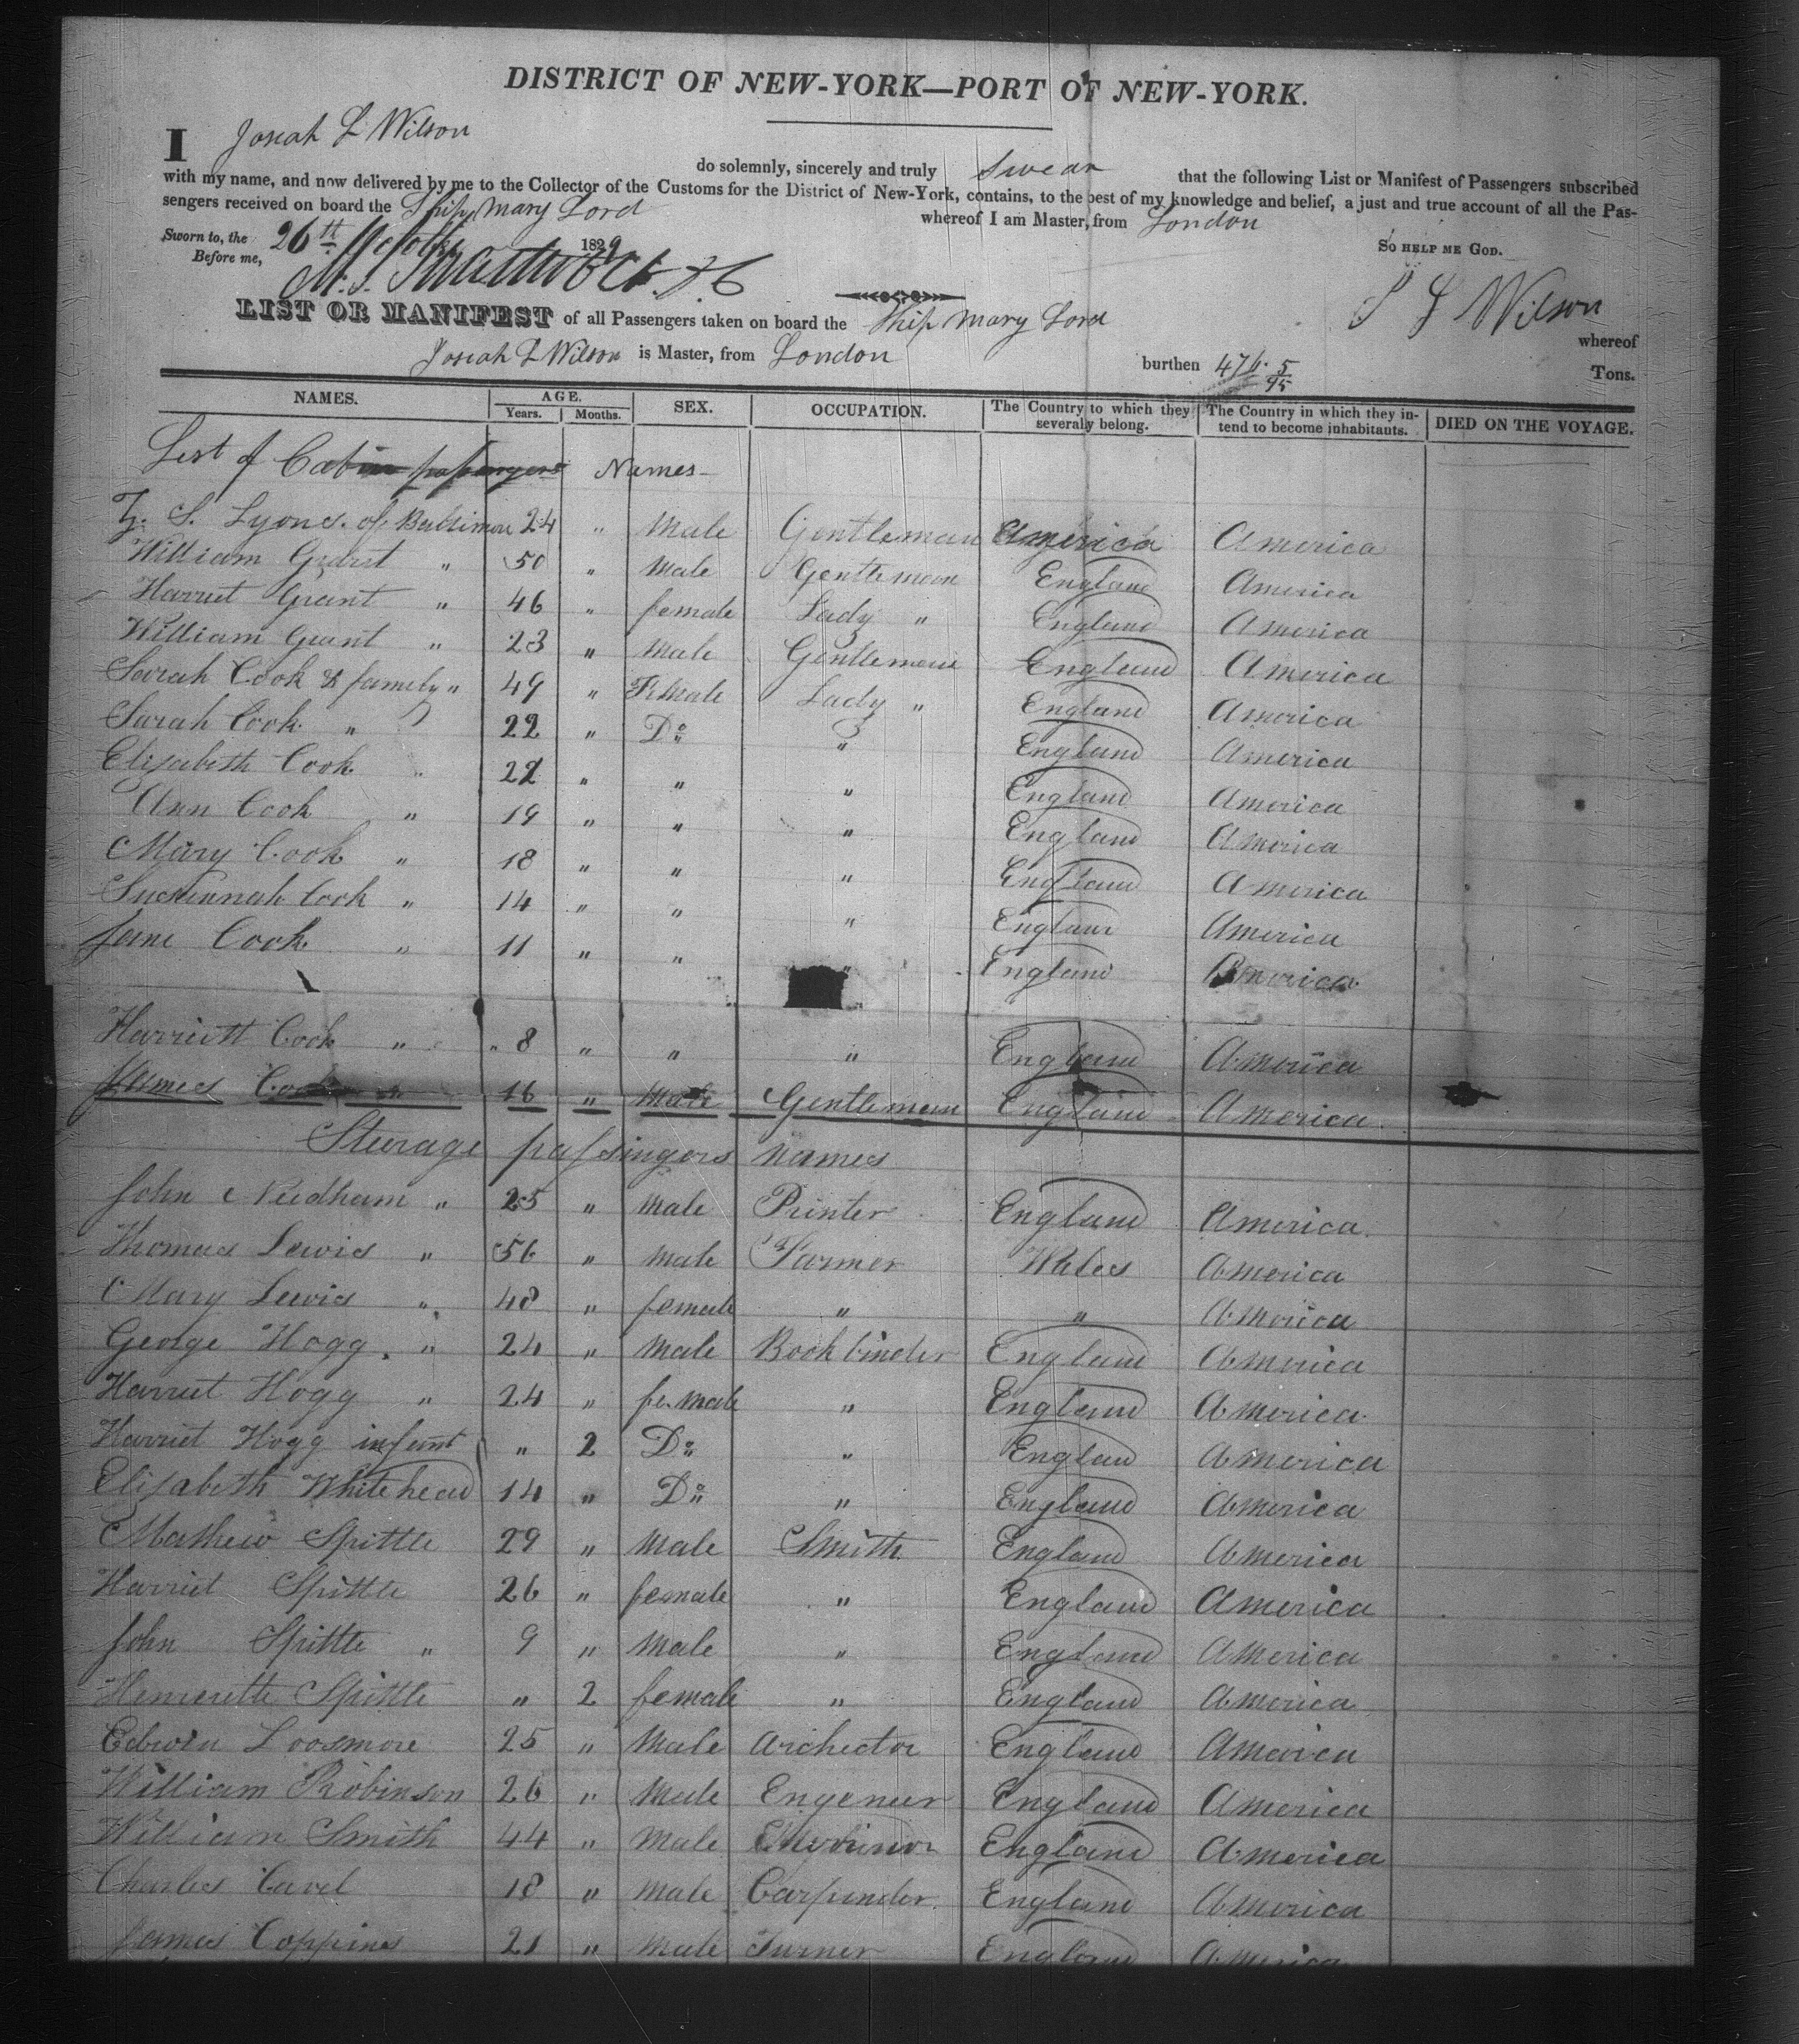 DISTRICT OF NEW-YORK—PORT OF NEW-YORK.
I Josiah L Wilson do solemnly, sincerely and truly Swear that the following List or Manifest of Passengers subscribed
with my name, and now delivered by me to the Collector of the Customs for the District of New-York, contains, to the best of my knowledge and belief, a just and true account of all the Pas-
sengers received on board the Ship Mary Lord whereof I am Master, from London
Sworn to, the 26th October 1829 SO HELP ME GOD.
Before me,
J L Wilson
LIST OR MANIFEST of all Passengers taken on board the Ship Mary Lord whereof
Josiah L Wilson is Master, from London burthen 476. 5/95 Tons.
NAMES. AGE. Years. Months. SEX. OCCUPATION. The Country to which they severally belong. The Country in which they in-tend to become inhabitants. DIED ON THE VOYAGE.
List of Cabin passengers Names
S. Lyons. of Baltimore 24 " Male Gentleman America America
William Grant " 50 " Male Gentleman England America
Harriet Grant " 46 " female Lady " England America
William Grant " 23 " Male Gentleman England America
Sarah Cook & family " 49 " Female Lady " England America
Sarah Cook " 22 " Do " England America
Elisabeth Cook " 22 " " " England America
Ann Cook " 19 " " " England America
Mary Cook " 18 " " " England America
Susannah Cook " 14 " " " England America
Jane Cook " 11 " " " England America
Harriett Cook " " 8 " " " England America
James Cook " 16 " Male Gentleman England America
Steerage passingers names
John Needham " 25 " Male Printer England America
Thomas Lewis " 56 " Male Farmer Wales America
Mary Lewis " 48 " female " " America
George Hogg " 24 " Male Bookbinder England America
Harriet Hogg " 24 " female " England America
Harriet Hogg infant " 2 Do " England America
Elisabeth Whitehead 14 " Do " England America
Mathew Spittle 29 " Male Smith England America
Harriet Spittle 26 " female " England America
John Spittle " 9 " Male " England America
Henerette Spittle " 2 female " England America
Edwin Loosmore 25 " Male Archector England America
William Robinson 26 " Male Engeneer England America
William Smith 44 " Male England America
Charles Cavel 18 " Male Carpinder England America
James Coppins 21 " Male Turner England America